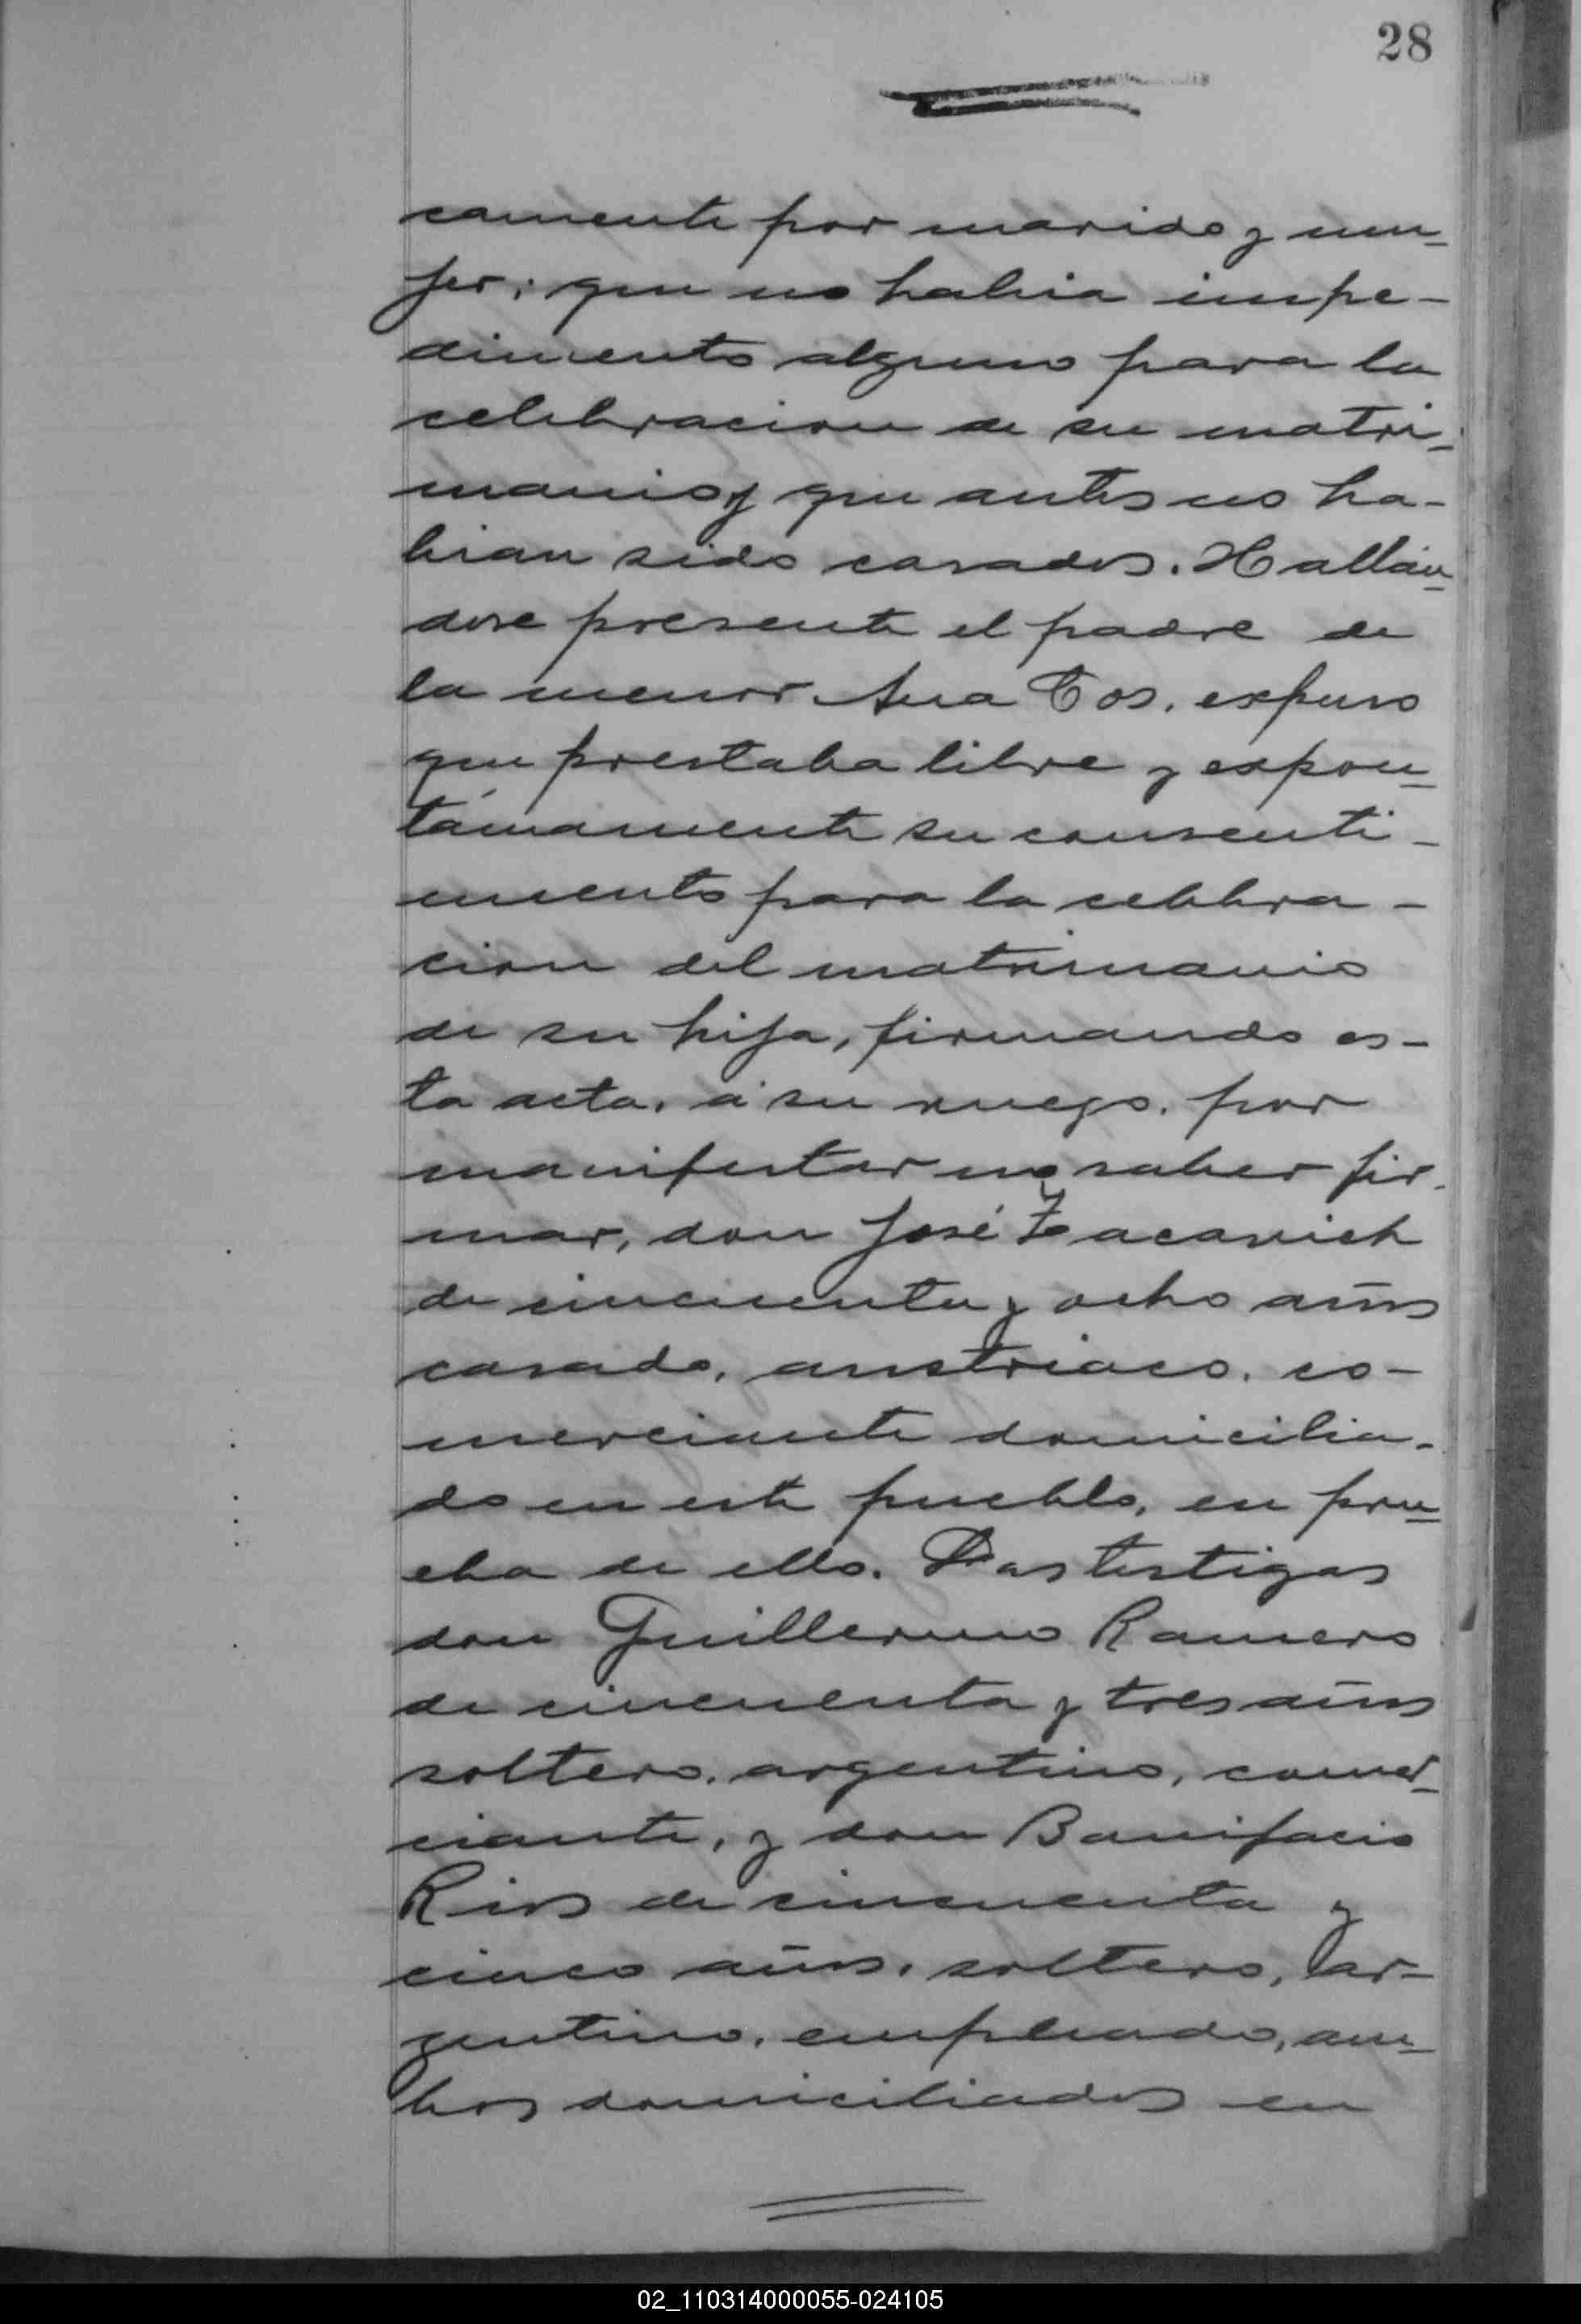 28
camente por marido y mu-
jer; que no habia impe-
dimento alguno para la
celebracion de su matri-
monio y que antes no ha-
bian sido casados. Hallán-
dose presente el padre de
la menor Ana Cos, expuso
que prestaba libre y expon-
táneamente su consenti-
miento para la celebra-
cion del matrimonio
de su hija, firmando es-
ta acta, á su ruego, por
manifestar no saber fir-
mar, don José
de cincuenta y ocho años
casado, austriaco, co-
merciante domicilia-
do en este pueblo, en pru-
eba de ello. Los testigos
don Guillermo Romero
de cincuenta y tres años
soltero, argentino, comer-
ciante, y don Bonifacio
Rios de cincuenta y
cinco años, soltero, ar-
gentino, empleado, am-
bos domiciliados en
02_110314000055-024105